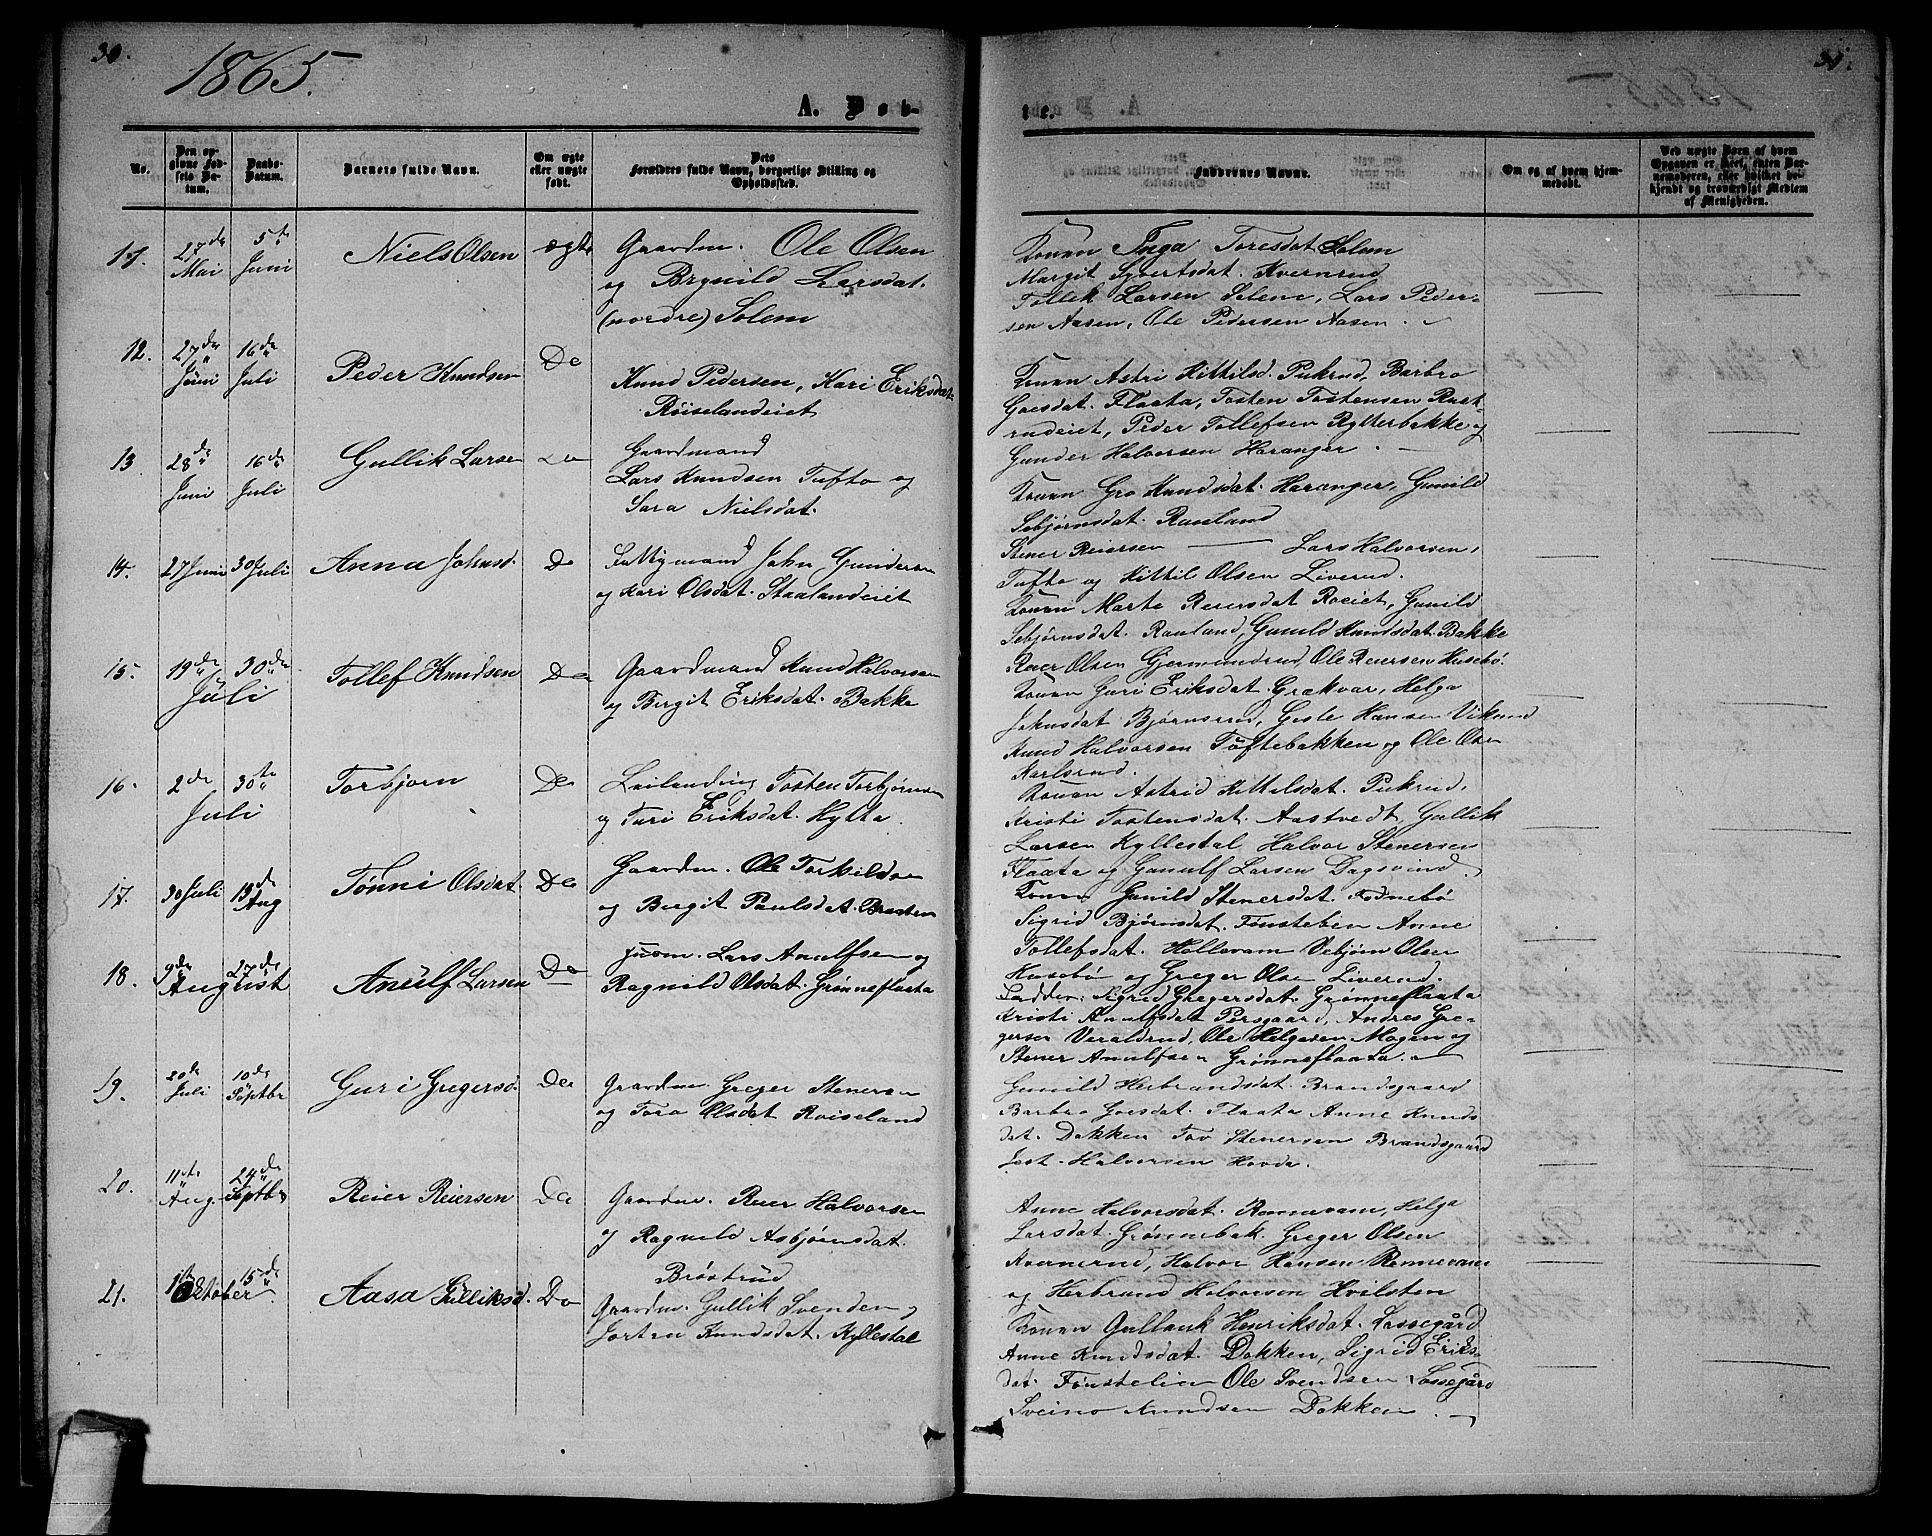 30.
1865.
A. Døb-
No.
Den op-
givne Fød-
sels Da-
tum.
Daabs-
Datum.
Barnets fulde Navn.
Om ægte
eller uægte
født.
Dets
Forældres fulde Navn, borgerlige Stilling og
Opholdssted.
11.
27de
Mai
5te
Juni
Niels Olsen
ægte
Gaardm. Ole Olsen
og Brynild Larsdat.
(nordre) Solem
12.
27de
Juni
16de
Juli
Peder Knudsen
Do
Knud Pedersen, Kari Eriksdat.
Røiselandeiet
13
28de
Juni
16de
Juli
Gullik Larsen
Do
Gaardmand
Lars Knudsen Tufto og
Sara Nielsdat.
14.
27 Juni
30 Juli
Anna Johnsd.
Do
John Gundersen
og Kari Olsdat. Staalandeiet
15.
19de
Juli
30de
Tollef Knudsen
Do
Gaardmand Knud Halvorsen
og Birgit Eriksdat. Bakke
16.
2de
Juli
30te
Torbjørn
Do
Leilending Tosten Torbjørnsen
og Turi Eriksdat. Hytta.
17.
30 Juli
13de
Aug
Tønni Olsdat.
Do
Gaardm. Ole Torkildsen
og Birgit Paulsdat. Braaten
18.
9de
August
27de
Anulf Larsen
Do
Lars Anulfsen og
Ragnild Olsdat. Grønneflaata
19.
20de
Juli
10de
Septbr
Guri Gregersd.
Do
Gaardm. Greger Stenersen
og Tora Olsdat Roiseland
20.
11te
Aug.
24de
Septbr
Reier Reiersen
Do
Gaardm. Reier Halvorsen
og Ragnild Asbjørnsdat.
Brøstrud
21.
1ste
Oktober
15de
Aasa Gulliksd.
Do
Gaardm. Gullik Svendsen og
Jorten Knudsdat. Kyllestal
31.
te.
Faddernes Navne.
Om og af hvem hjem-
medøbt.
Ved uægte Børn af hvem
Opgaven er skeet, enten Bar-
nemoderen, eller hvilket be-
kjendt og troværdigt Medlem
af Menigheden.
Konen Inga Toresdat Solem
Margit Syvertsdat. Kvernrud
Tollik Larsen Solem, Lars Peder-
sen Aasen, Ole Pedersen Aasen.
Konen Astri Kittilsd. Pukrud, Barbro
Goesdat. Flaata, Tosten Tostensen Rust-
rudeiet, Peder Tollefsen Rytterbakke og
Gunder Halvorsen Haranger.
Konen Gro Knudsdat. Haranger, Gunild
Sebjørnsdat. Rauland
Stener Reiersen Lars Halvorsen,
Tufto og Kittil Olsen Liverud.
Konen Marte Reiersdat Roeiet, Gunild
Sebjørnsdat. Rauland, Gunild Knudsdat. Bakke
Reier Olsen Gjermundrud, Ole Reiersen Husebø.
Konen Guri Eriksdat. Grækvar, Helga
Johnsdat Bjørnsrud, Gisle Hansen
Knud Halvorsen Tøftebakken og Ole Olsen
Karlsrud.
Konen Astrid Kittilsdat. Pukrud,
Kristi Tostensdat. Aastvedt, Gullik
Larsen Kyllestal Halvor Stenersen
Flaata og Gunulf Larsen Dagsvind.
Konen Gunild Stenersdat. Fodnebø
Sigrid Bjørnsdat. Fønsteben Anne
Tollefsdat. Hellevam Vebjørn Olsen
Husebø og Greger Olsen Liverud.
Faddere: Sigrid Gregersdat. Grønneflaata
Kristi Anulfsdat Persgaard, Andres Gre-
gersen Veraldrud, Ole Helgesen Mogen og
Stener Anulfsen Grønneflaata.
Gunild Herbrandsdat. Brandsgaard
Barbro Goesdat. Flaata Anne Knuds
dat. Dokken Tov Stenersen Brandsgaard
Halvorsen Hovde.
Anne Halvorsdat. Rennevam, Helga
Larsdat. Grønnebak. Greger Olsen
Kvernerud, Halvor Hansen Rennevam
og Herbrand Halvorsen Hvilsten
Konen Gullauk Henriksdat. Lossegård
Anne Knudsdat. Dokken, Sigrid Eriks-
dat. Fønstelien Ole Svendsen Lossegård
Sveino Knudsen Dokken.